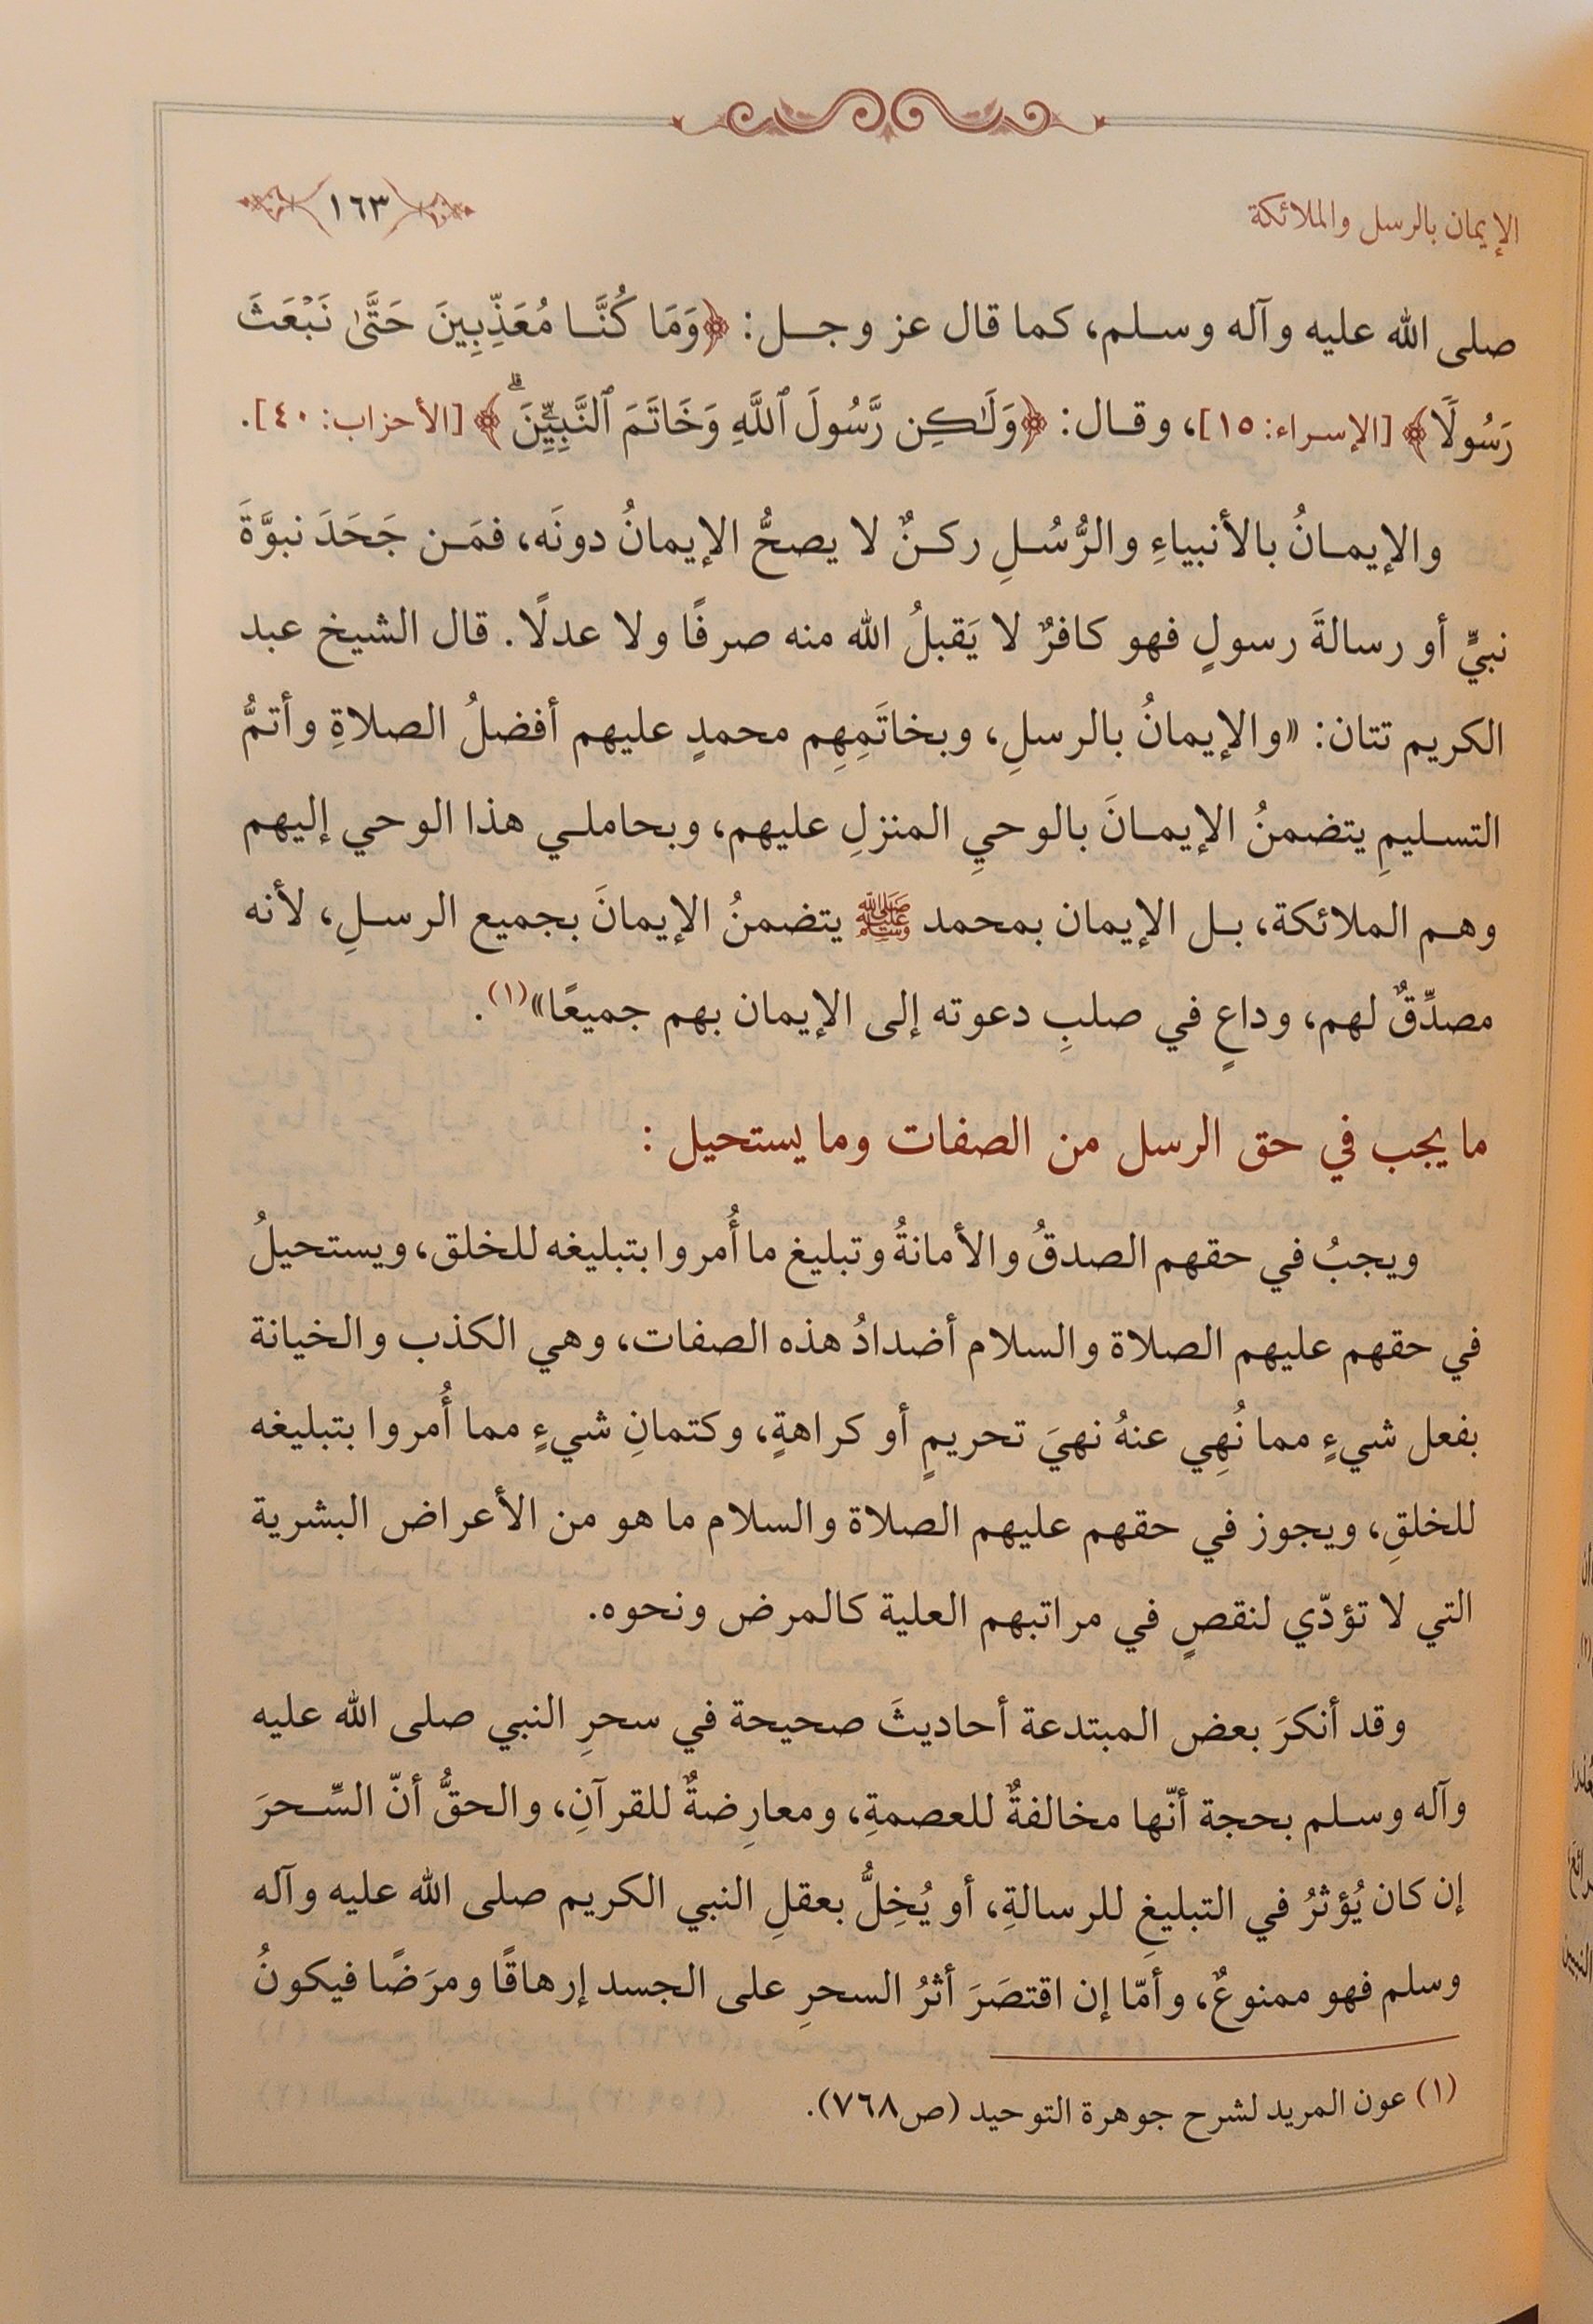 الإيمان بالرسل والملائكة
١٦٣
صلى الله عليه وآله وسلم، كما قال عز وجل: ﴿وَمَا كُنَّا مُعَذِّبِينَ حَتَّىٰ نَبْعَثَ
رَسُولًا﴾ [الإسراء: ١٥]، وقال: ﴿وَلَٰكِن رَّسُولَ ٱللَّهِ وَخَاتَمَ ٱلنَّبِيِّينَۗ﴾ [الأحزاب: ٤٠].
والإيمانُ بالأنبياءِ والرُّسُلِ ركنٌ لا يصحُّ الإيمانُ دونَه، فمَن جَحَدَ نبوَّةَ
نبيٍّ أو رسالةَ رسولٍ فهو كافرٌ لا يَقبلُ الله منه صرفًا ولا عدلًا. قال الشيخ عبد
الكريم تتان: «والإيمانُ بالرسلِ، وبخاتَمِهِم محمدٍ عليهم أفضلُ الصلاةِ وأتمُّ
التسليمِ يتضمنُ الإيمانَ بالوحيِ المنزلِ عليهم، وبحاملي هذا الوحي إليهم
وهم الملائكة، بل الإيمان بمحمد ﷺ يتضمنُ الإيمانَ بجميع الرسلِ، لأنه
مصدِّقٌ لهم، وداعٍ في صلبِ دعوته إلى الإيمان بهم جميعًا»(١).
ما يجب في حق الرسل من الصفات وما يستحيل :
ويجبُ في حقهم الصدقُ والأمانةُ وتبليغ ما أُمروا بتبليغه للخلق، ويستحيلُ
في حقهم عليهم الصلاة والسلام أضدادُ هذه الصفات، وهي الكذب والخيانة
بفعل شيءٍ مما نُهِي عنهُ نهيَ تحريمٍ أو كراهةٍ، وكتمانِ شيءٍ مما أُمروا بتبليغه
للخلقِ، ويجوز في حقهم عليهم الصلاة والسلام ما هو من الأعراض البشرية
التي لا تؤدّي لنقصٍ في مراتبهم العلية كالمرض ونحوه.
وقد أنكرَ بعض المبتدعة أحاديثَ صحيحة في سحرِ النبي صلى الله عليه
وآله وسلم بحجة أنّها مخالفةٌ للعصمةِ، ومعارِضةٌ للقرآنِ، والحقُّ أنّ السِّحرَ
إن كان يُؤثرُ في التبليغِ للرسالةِ، أو يُخِلُّ بعقلِ النبي الكريم صلى الله عليه وآله
وسلم فهو ممنوعٌ، وأمّا إن اقتصَرَ أثرُ السحرِ على الجسد إرهاقًا ومرَضًا فيكونُ
(١) عون المريد لشرح جوهرة التوحيد (ص٧٦٨).